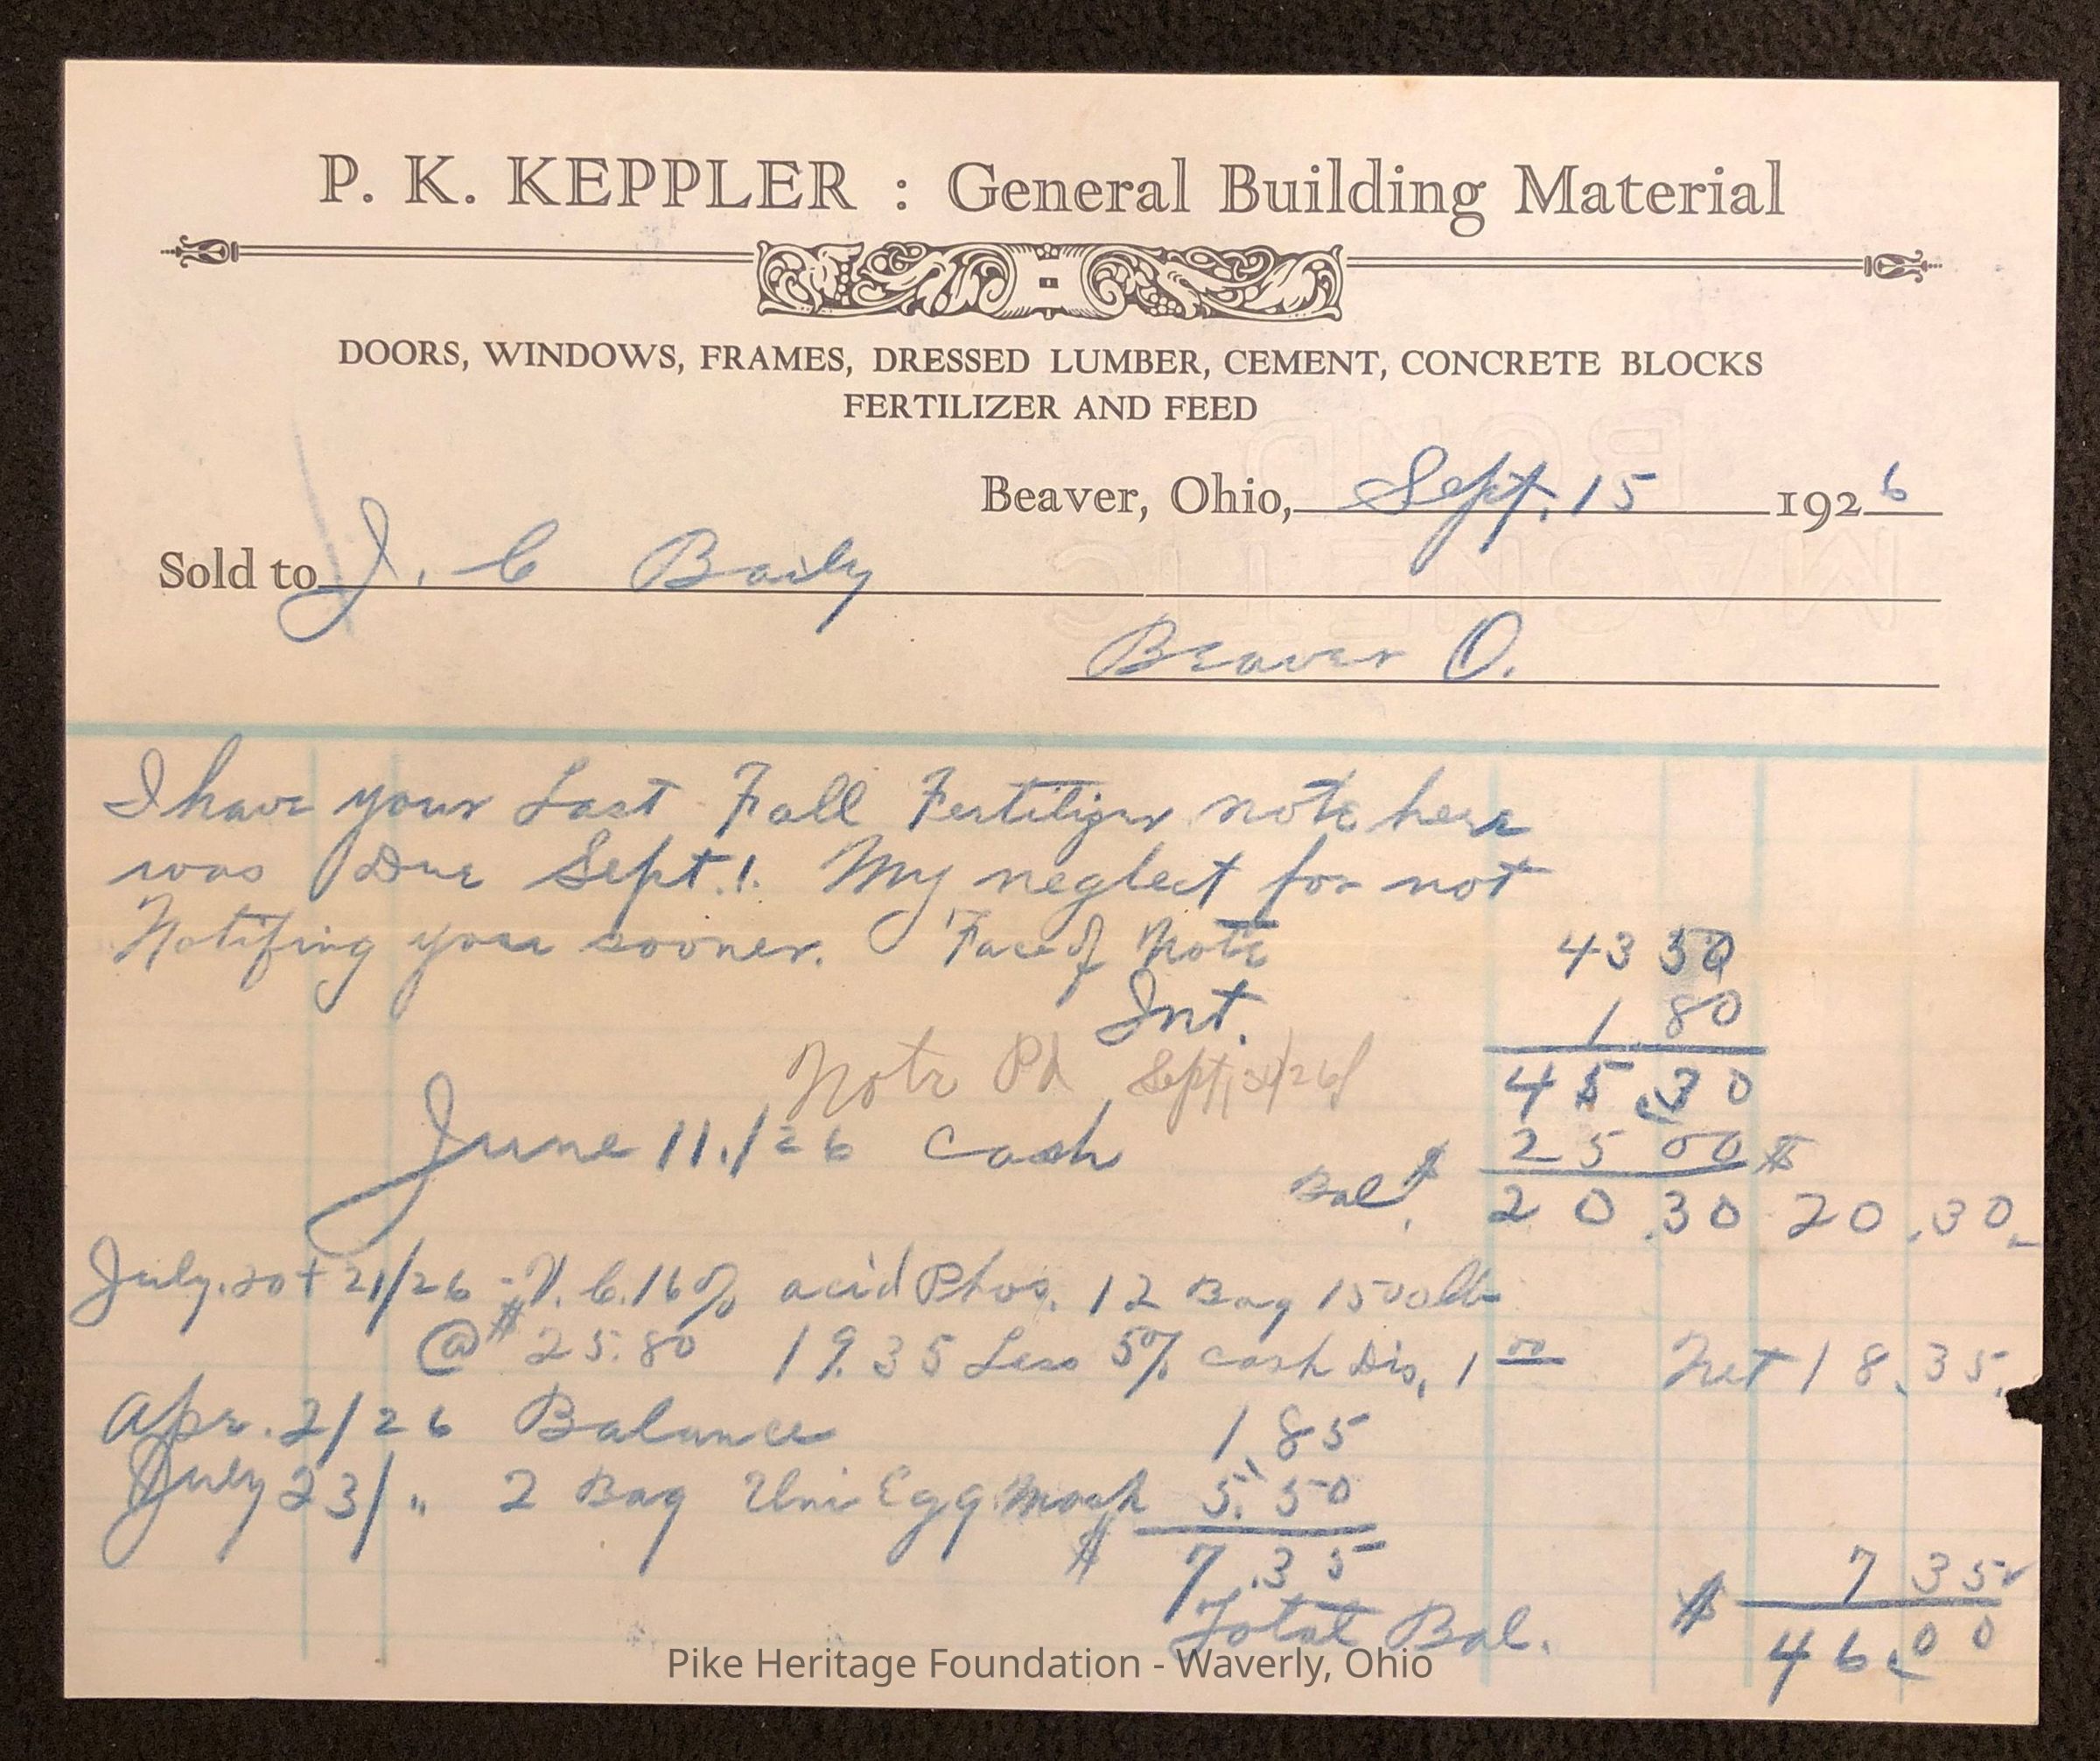 P. K. KEPPLER : General Building Material
DOORS, WINDOWS, FRAMES, DRESSED LUMBER, CEMENT, CONCRETE BLOCKS
FERTILIZER AND FEED
BOND
MAGNETIC
Beaver, Ohio, Sept. 15 1926
Sold to J. C Baily
Beaver O.
I have your Last Fall Fertilizer note here
was Due Sept. 1. My neglect for not
Notifing you sooner. Face of Note 43 50
Int. 1.80
45.30
Note Pd Sept /26
June 11./26 Cash 25 00
Bal. $ 20.30 $ 20.30
July. 20 + 21/26 - V. C. 16% acid Phos. 12 Bag 1500lb
@ $25.80 19.35 Less 5% cash Dis, 1 00 Net 18.35
Apr. 2/26 Balance 1.85
July 23/ " 2 Bag Uni Egg Mash 5.50
$ 7.35 7 35
Total Bal. $ 46.00
Pike Heritage Foundation - Waverly, Ohio